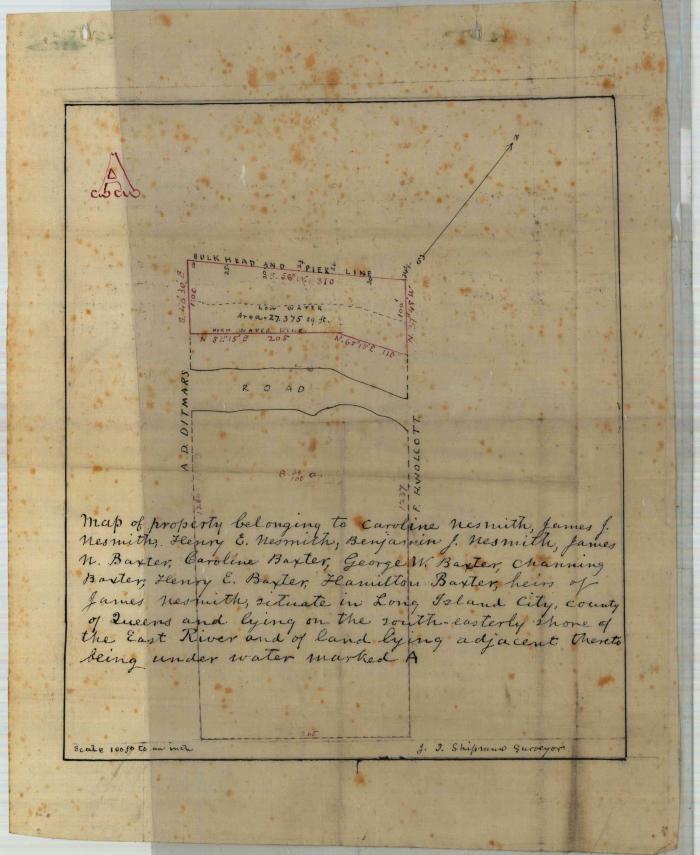 A
BULKHEAD AND PIER LINE
310
100
LOW WATER
Area = 27,375 sq. ft.
HIGH WATER LINE
N 52° 15' E 205
N. 65° 15' E 110
ROAD
A. D. DITMARS
F. H. WOLLCOTT
N
Map of property belonging to Caroline Nesmith, James J.
Nesmith, Henry E. Nesmith, Benjamin J. Nesmith, James
N. Baxter, Caroline Baxter, George W. Baxter, Channing
Baxter, Henry E. Baxter, Hamilton Baxter, heirs of
James Nesmith, situate in Long Island City, county
of Queens and lying on the south-easterly shore of
the East River and of land lying adjacent thereto
being under water marked A
Scale 100 ft to an inch
Surveyor